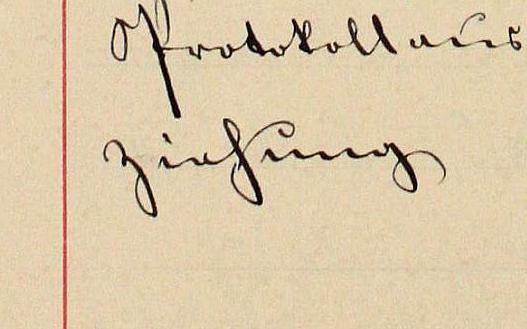 Protokollaus
ziehung